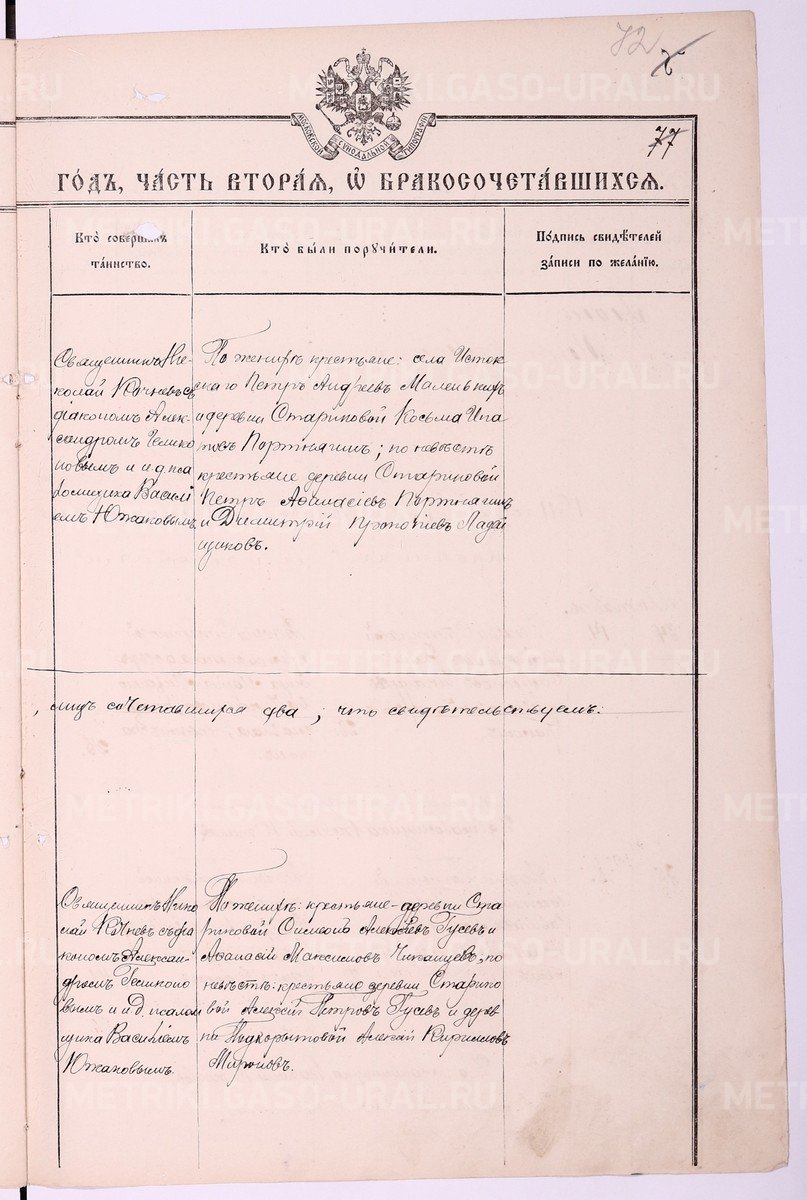 72
77
МОСКОВСКОЙ СѴНОДАЛЬНОЙ ТИПОГРАФІИ
ГО́ДЪ, ЧА́СТЬ ВТОРА́Я, Ѡ҆ БРАКОСОЧЕТА́ВШИХСЯ.
Кто̀ соверши́лъ
та́инство.
Кто̀ бы́ли порꙋчи́тели.
По́дпись свидѣ́телей
за́писи по жела́нїю.
Священникъ Ни-
колай Кочневъ съ
діакономъ Алек-
сандромъ Гелико
новымъ и и.д. пса
ломщика Василі
емъ Южаковымъ
По женихѣ крестьяне: села Исток
скаго Петръ Андреевъ Маленькихъ
и деревни Стариковой Косьма Ипа
товъ Портнягинъ; по невѣстѣ
крестьяне деревни Стариковой
Петръ Аѳанасіевъ Портнягинъ
и Димитрій Прокопіевъ Ладей
щиковъ.
лицъ сочетавшихся два, что свидѣтельствуемъ:
Священникъ Нико
лай Кочневъ съ діа
кономъ Алексан-
дромъ Геликоно
вымъ и и.д. псалом
щика Василіемъ
Южаковымъ.
По женихѣ: крестьяне деревни Ста
риковой Симеонъ Алексѣевъ Гусевъ и
Аѳанасій Максимовъ Чипанцевъ, по
невѣстѣ: крестьяне деревни Старико
вой Алексѣй Петровъ Гусевъ и дерев
ни Подкорытовой Алексѣй Кирилловъ
Мироновъ.
METRIKI.GASO-URAL.RU